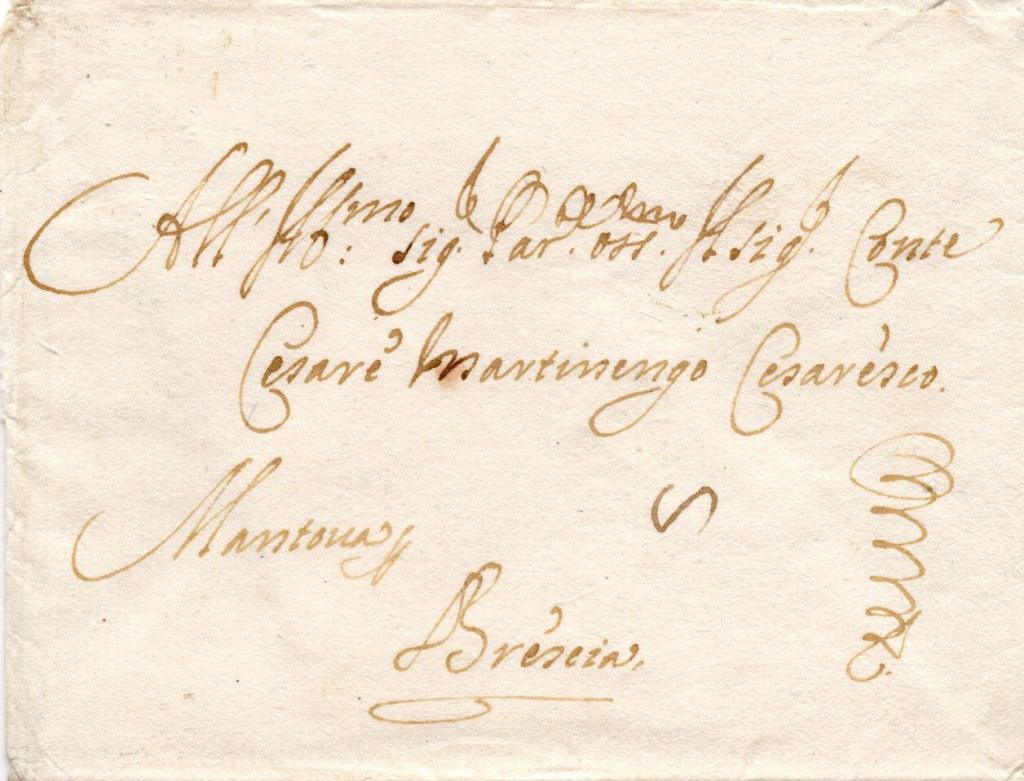 All' Ill.mo Sig.r Par. Oss.mo Il Sig.r Conte
Cesarè Martinengo Cesarésco.
Mantova
Bréscia.